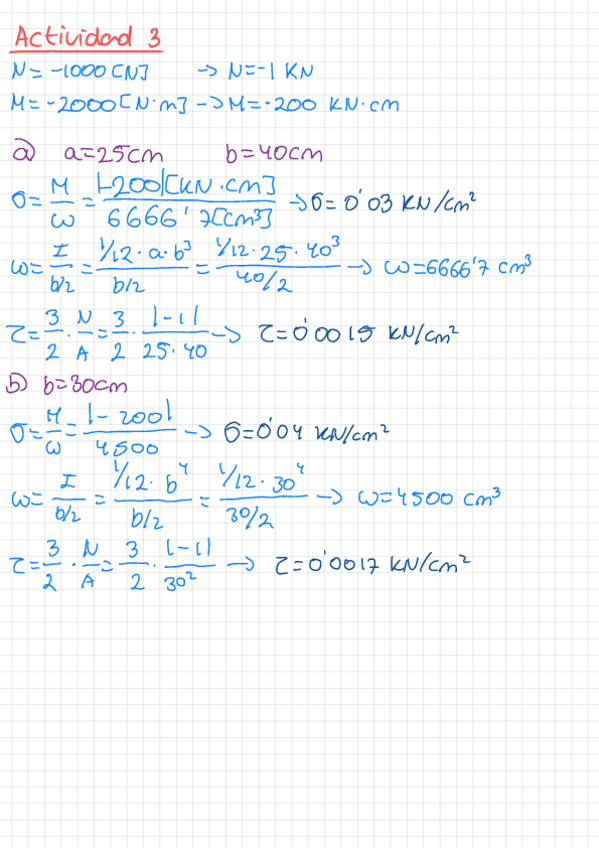 Actividad 3
N = -1000 [N] → N = -1 KN
M = -2000 [N·m] → M = -200 KN·cm
a) a = 25cm b = 40cm
σ = M/ω = |-200| [KN·cm] / 6666'7 [cm³] → σ = 0'03 KN/cm²
ω = I/(b/2) = (1/12·a·b³)/(b/2) = (1/12·25·40³)/(40/2) → ω = 6666'7 cm³
τ = 3/2 · N/A = 3/2 · |-1|/(25·40) → τ = 0'0015 KN/cm²
b) b = 30cm
σ = M/ω = |-200|/4500 → σ = 0'04 KN/cm²
ω = I/(b/2) = (1/12·b⁴)/(b/2) = (1/12·30⁴)/(30/2) → ω = 4500 cm³
τ = 3/2 · N/A = 3/2 · |-1|/30² → τ = 0'0017 KN/cm²